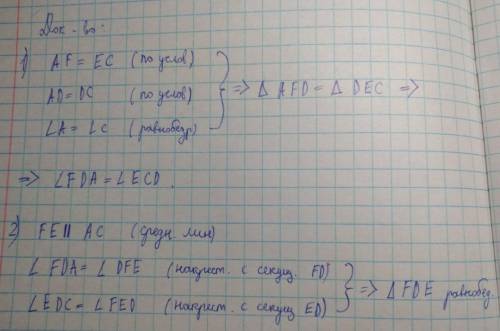 Док-во:
1) AF = EC (по услов)
AD = DC (по услов) => Δ AFD = Δ DEC =>
∠A = ∠C (равнобедр)
=> ∠FDA = ∠ECD.
2) FE || AC (средн. лин)
∠FDA = ∠DFE (накрест. с секущ. FD)
∠EDC = ∠FED (накрест. с секущ. ED) => Δ FDE равнобед.